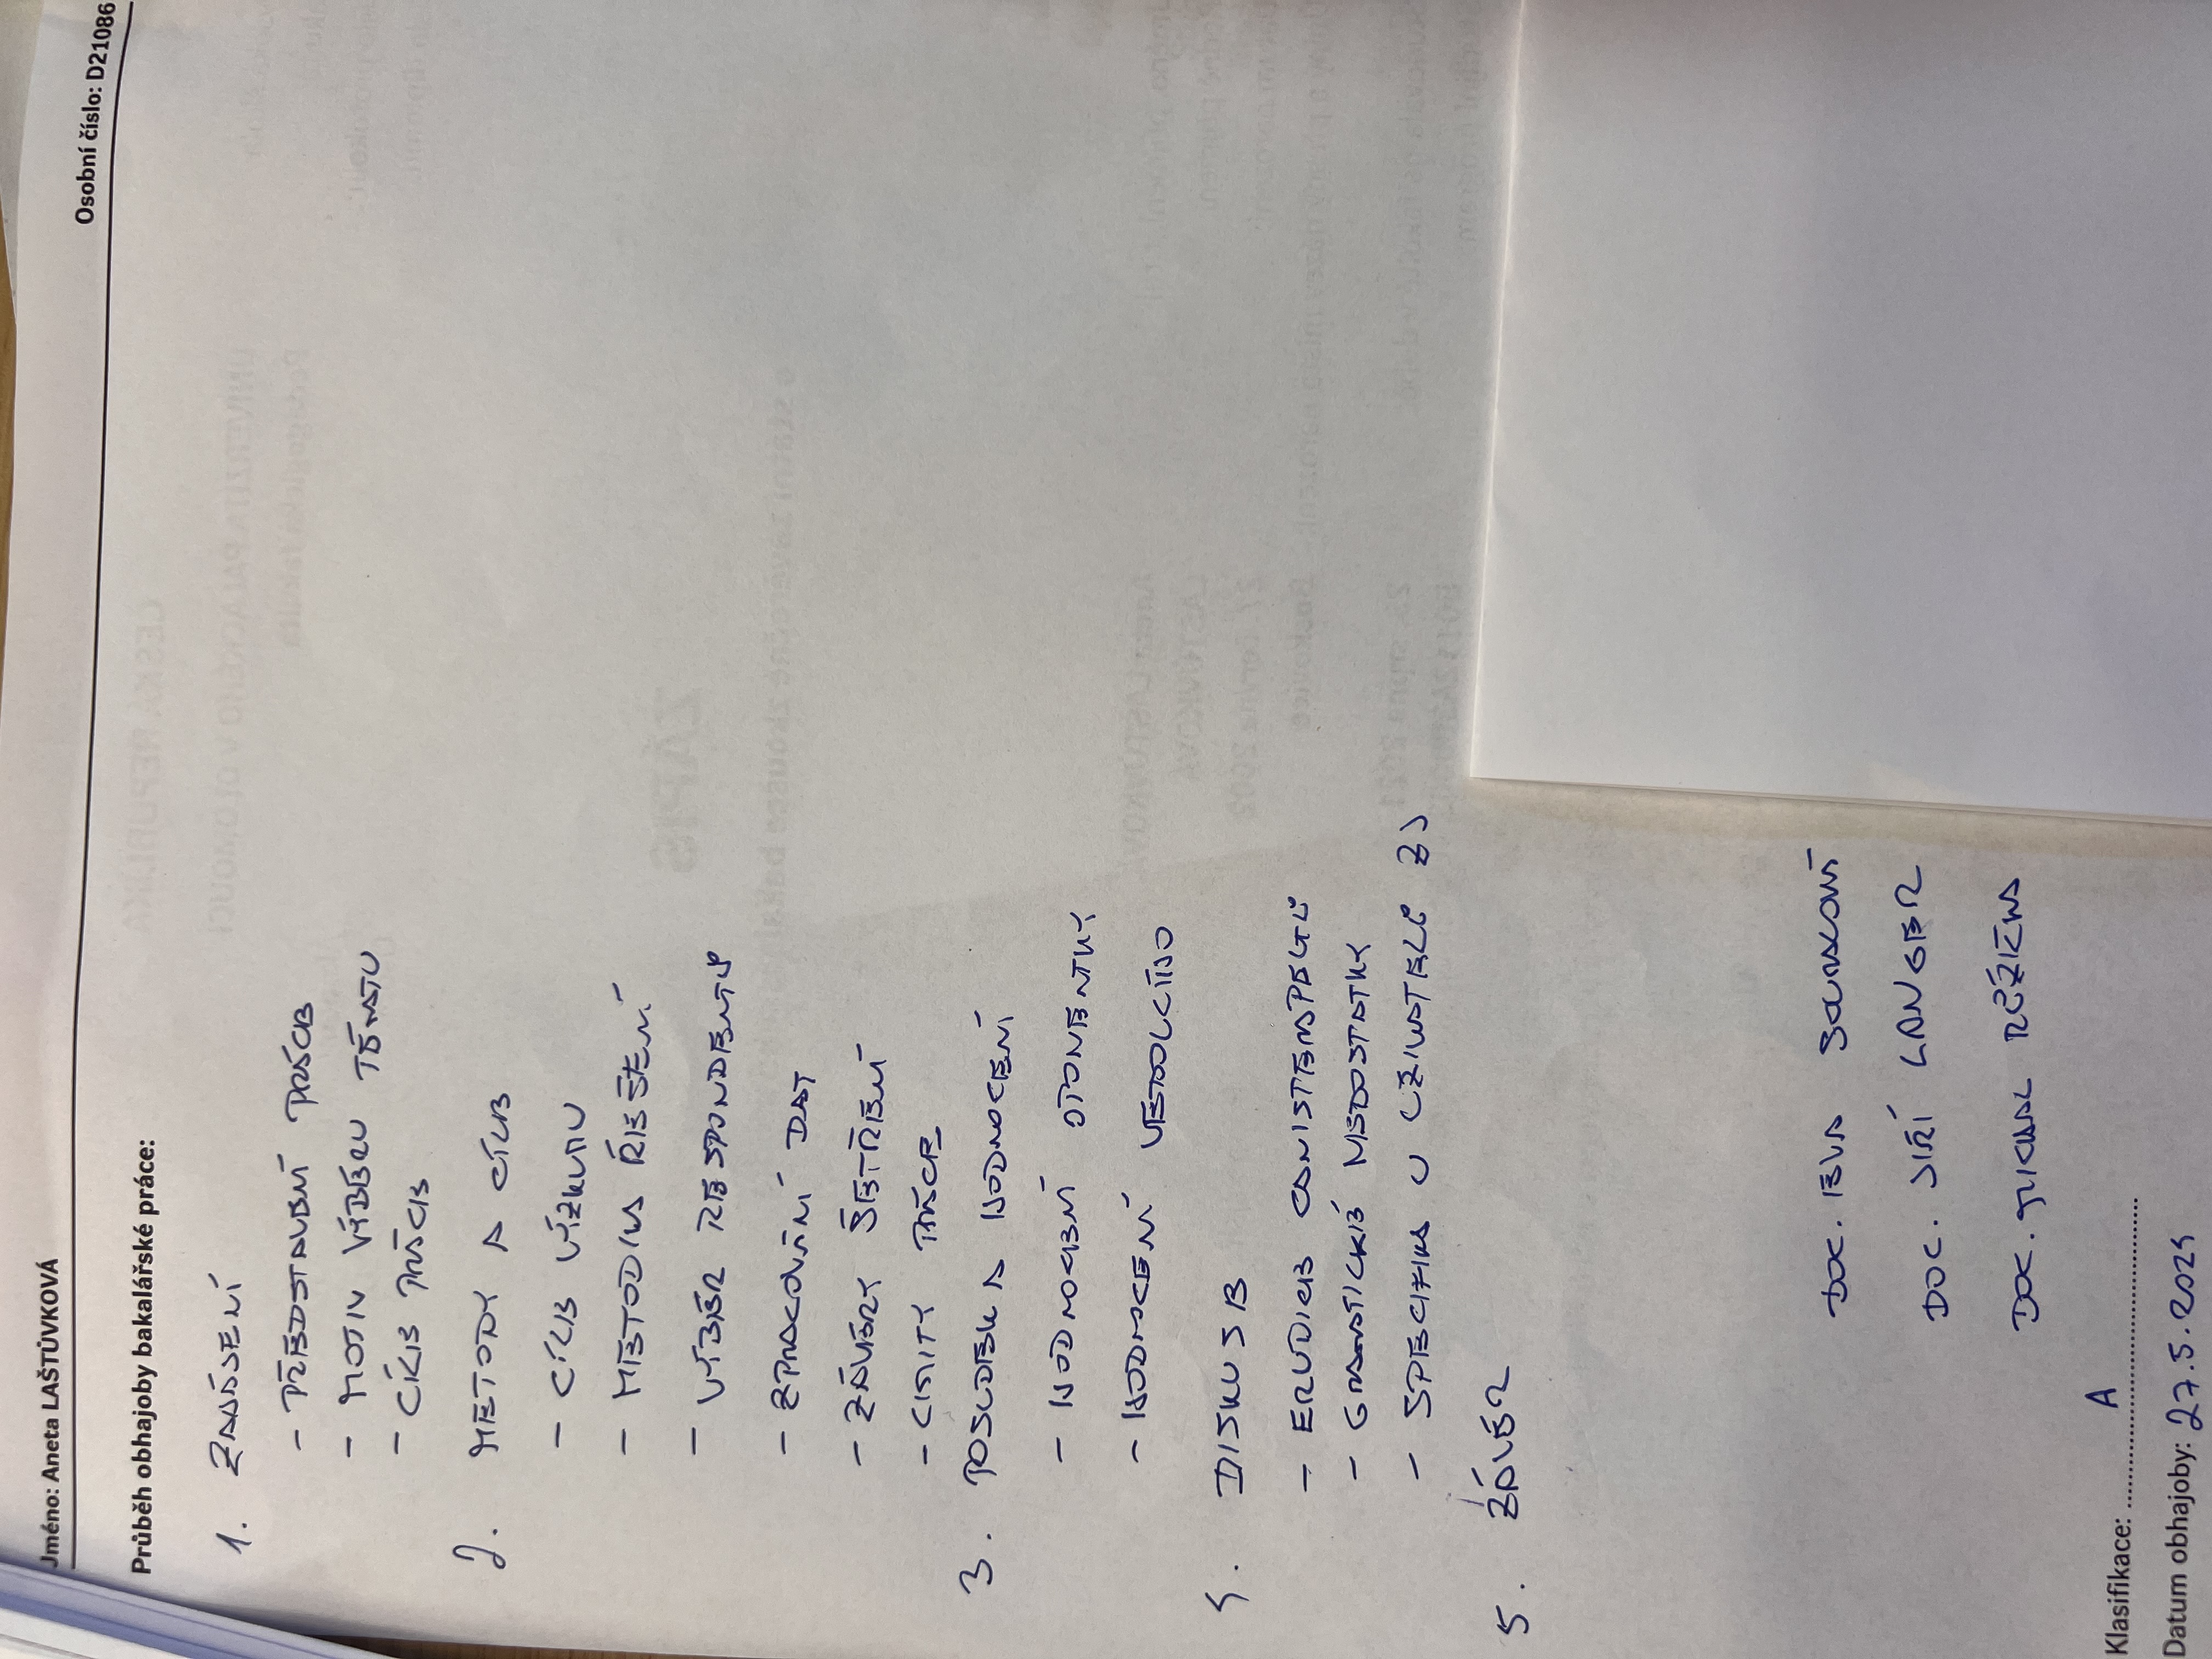 Jméno: Aneta LAŠTŮVKOVÁ Osobní číslo: D21086
Průběh obhajoby bakalářské práce:
1. ZAHÁJENÍ
- PŘEDSTAVENÍ PRÁCE
- MOTIV VÝBĚRU TÉMATU
- CÍLE PRÁCE
2. METODY A CÍLE
- CÍLE VÝZKUMU
- METODIKA ŘEŠENÍ
- VÝBĚR RESPONDENTŮ
- ZPRACOVÁNÍ DAT
- ZÁVĚRY ŠETŘENÍ
- LIMITY PRÁCE
3. POSUDEK A HODNOCENÍ
- HODNOCENÍ OPONENTKY
- HODNOCENÍ VEDOUCÍHO
4. DISKUSE
- ERUDICE
- GRAMATICKÉ NEDOSTATKY
- SPECIFIKA U UŽIVATELŮ ZJ
5. ZÁVĚR
DOC. EVA SOURALOVÁ
DOC. JIŘÍ LANGER
DOC. MICHAL RŮŽIČKA
Klasifikace: ........A........
Datum obhajoby: 27.5.2025